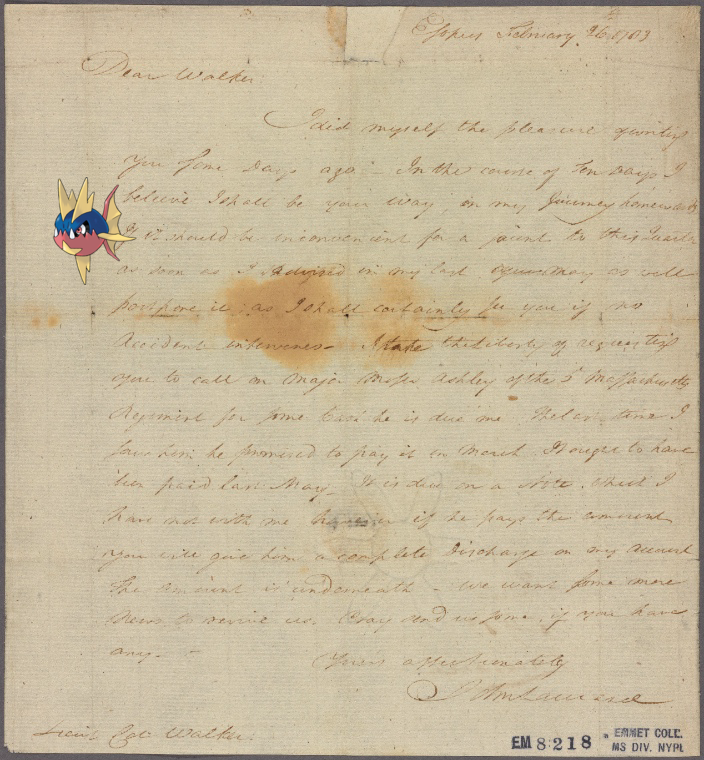 Esopus February 26. 1783
Dear Walker.
I did myself the pleasure of writing
you some Days ago. - In the course of Ten Days I
believe I shall be your way, on my Journey homewards
If it should be inconvenient for a to this Quarter
as soon as I advised in my last you may as well
postpone it, as I shall certainly see you if no
Accident intervenes - I take the liberty of requesting
you to call on Major Moses Ashley of the 5th Massachusetts
Regiment for some Cash he is due me. The last time I
saw him he promised to pay it in March. It ought to have
been paid last May. It is due on a Note, which I
have not with me however if he pays the amount
you will give him a complete Discharge on my account
The Amount is underneath - we want some more
News to revive us. Pray send us some, if you have
any. -
Yours affectionately
Lieut Col. Walker.
EM 8218
EMMET COLL.
MS DIV. NYPL